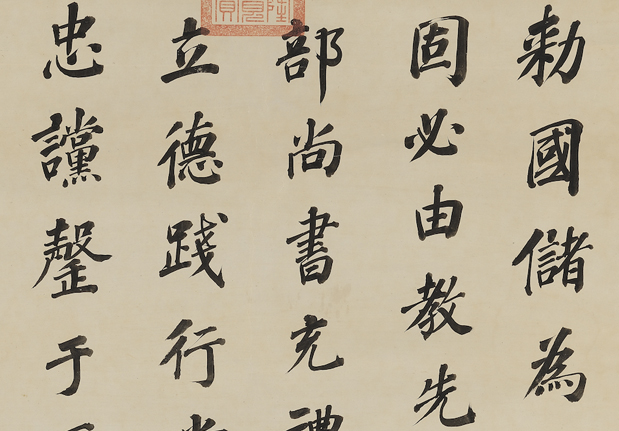 敕國儲為
固必由教先
部尚書充禮
立德踐行當
忠讜罄于